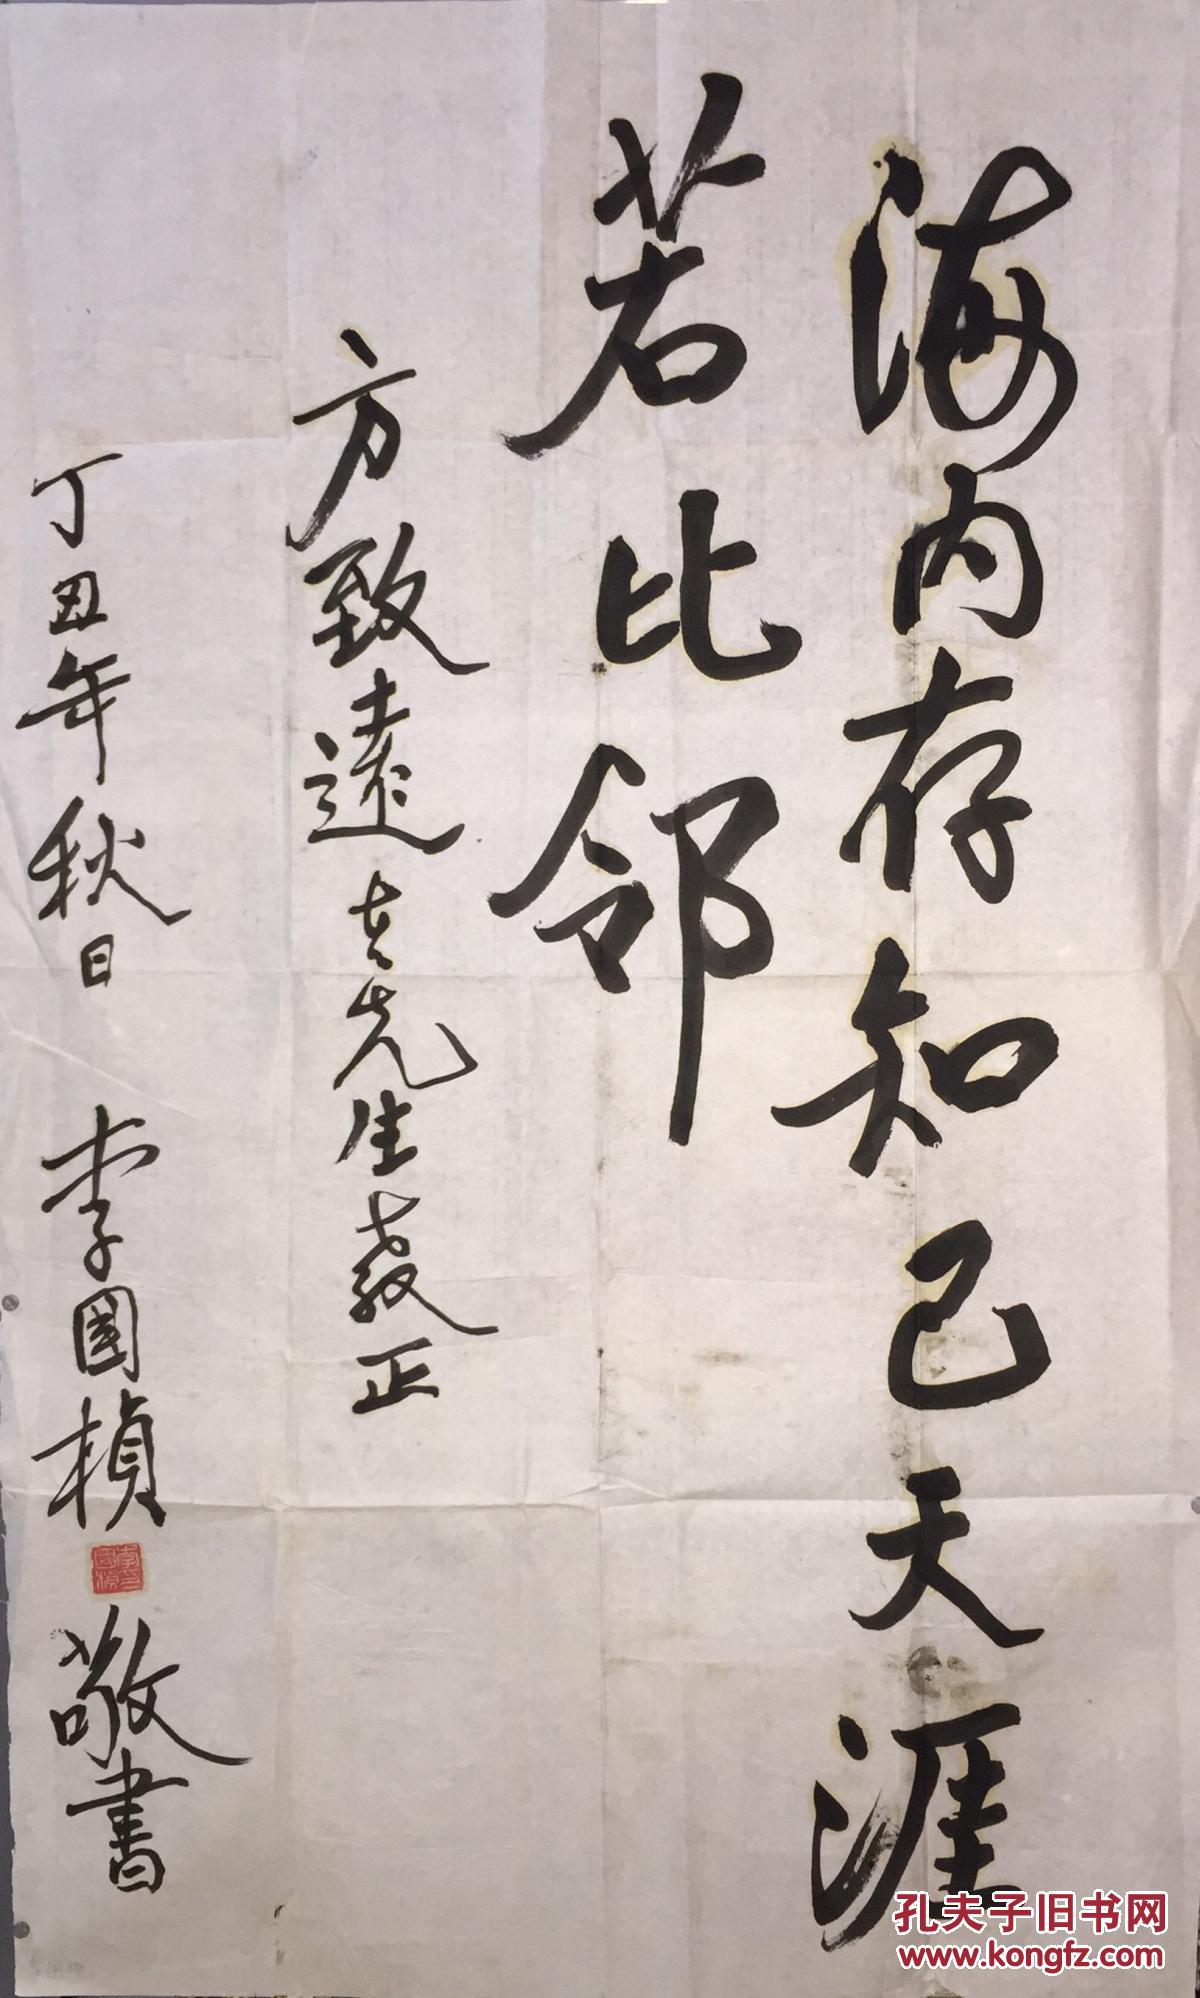 海内存知己天涯
若比邻
方致遠 老先生教正
丁丑年秋日 李國楨 敬書
李國楨印
孔夫子旧书网
www.kongfz.com